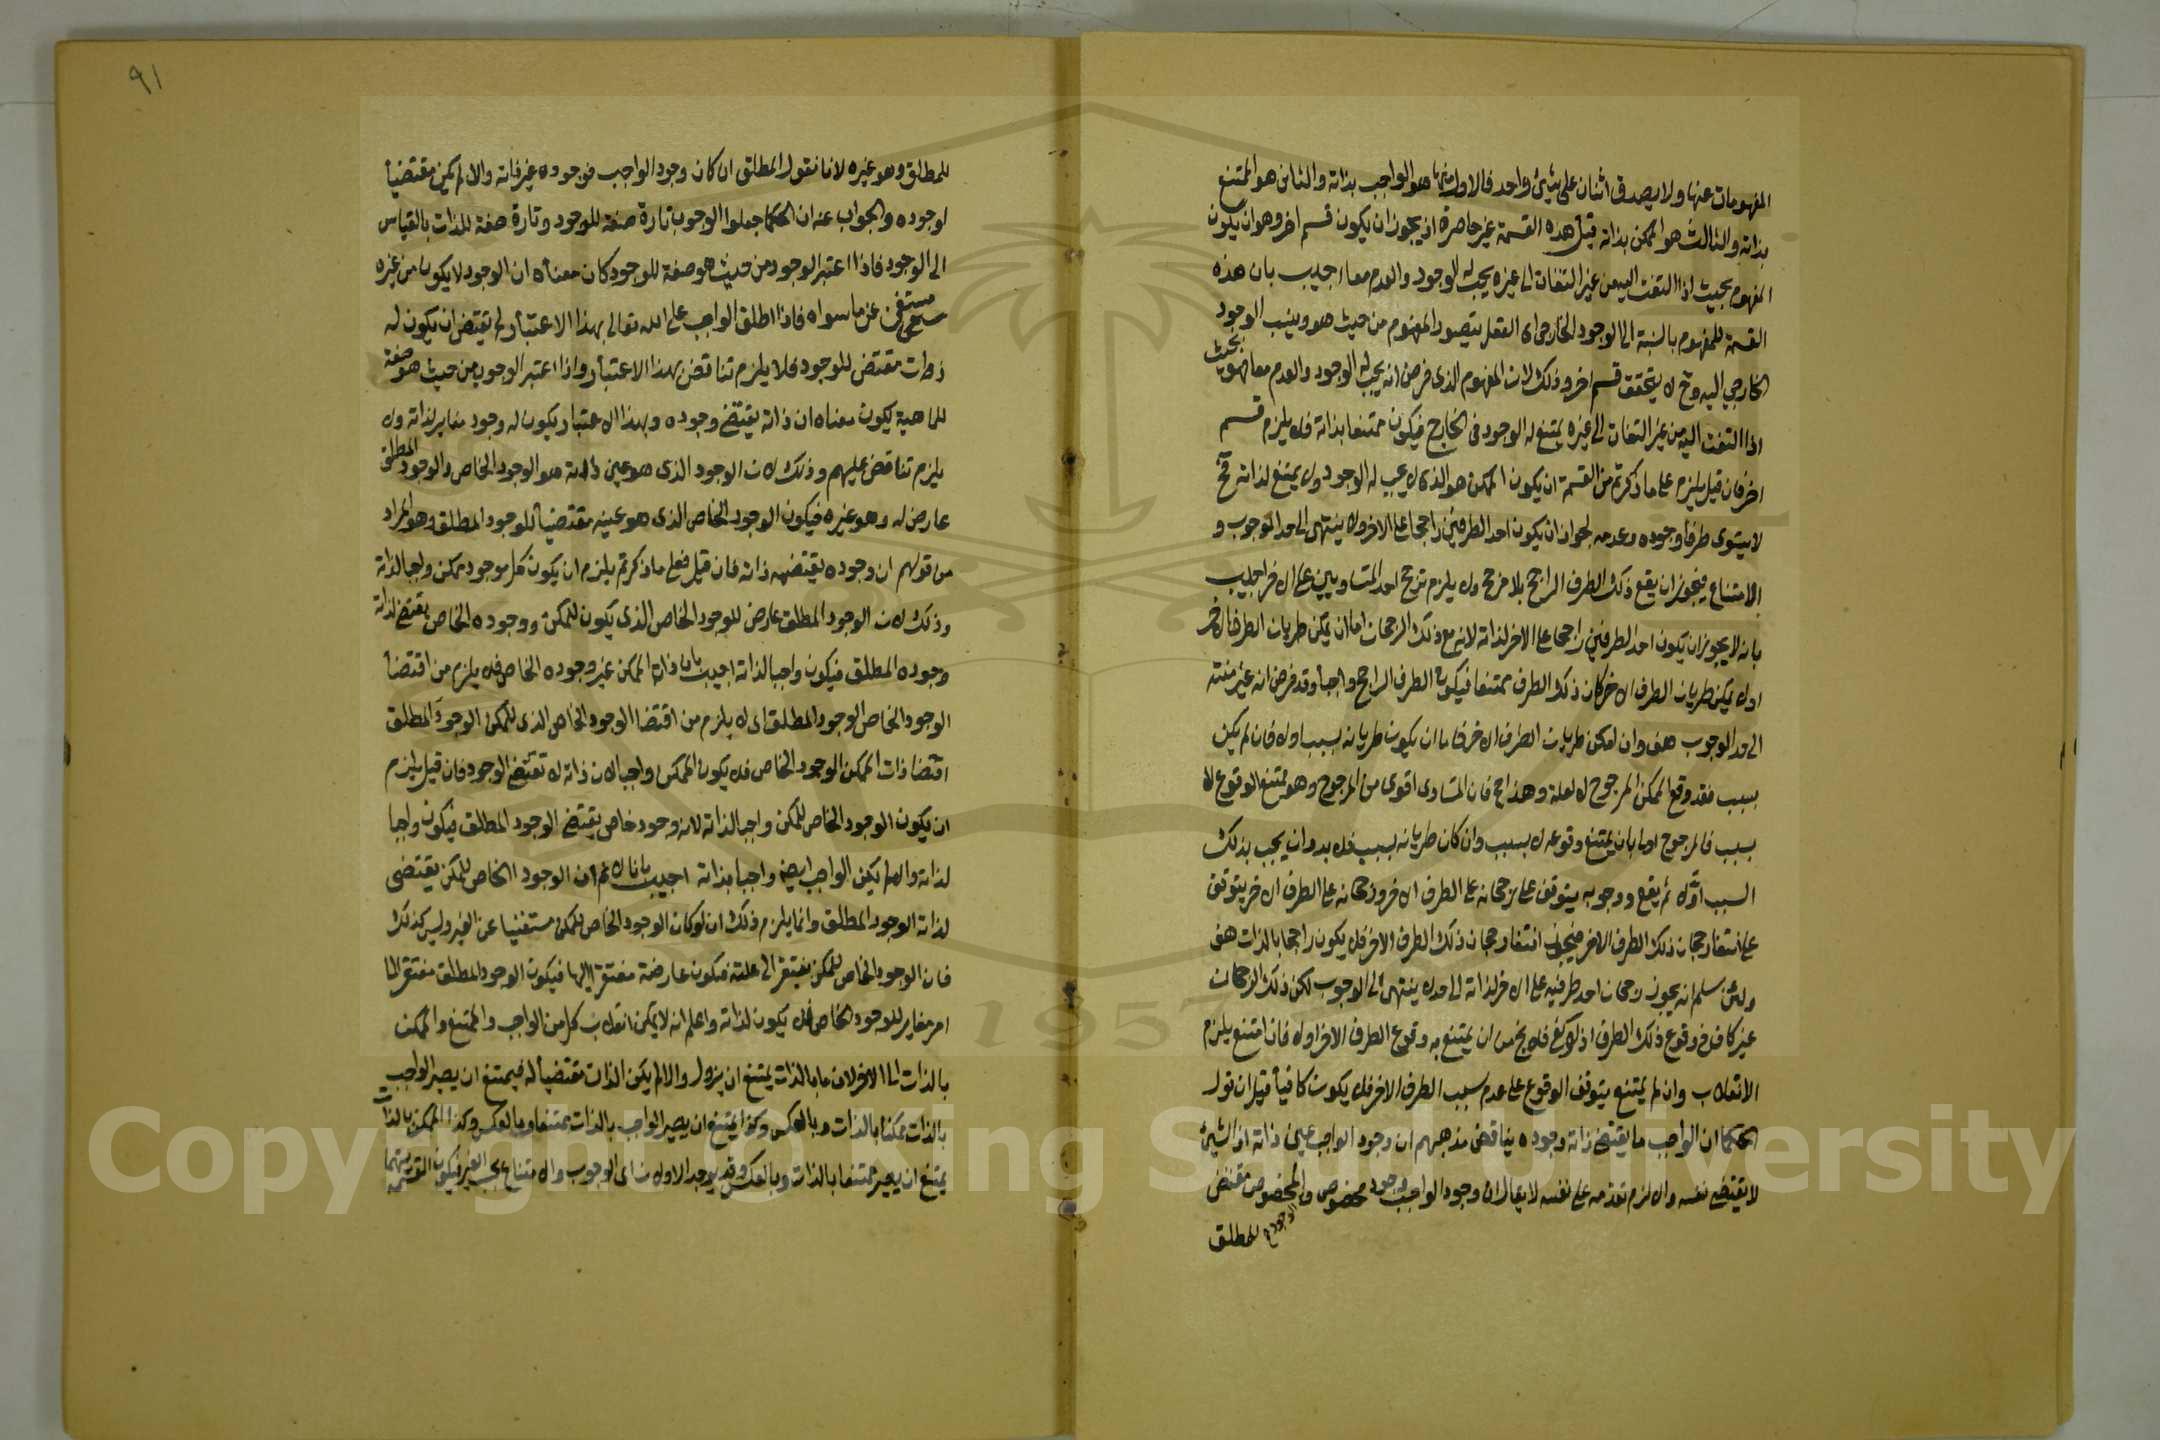 المفهومات عنها ولا يصدق اثنان على شيئ واحد فالاول منها هو الواجب بذاته والثانى هو الممتنع
بذاته والثالث هو الممكن بذاته قيل هذه القسمة غير حاصرة اذ يجوز ان يكون قسم اخر وهو ان يكون
المفهوم بحيث اذا التفت اليه من غير التفات الى غيره يجب له الوجود والعدم معا اجيب بان هذه
القسمة للمفهوم بالنسبة الى الوجود الخارجى اى العقل يتصور المفهوم من حيث هو وينسب الوجود
الخارجي اليه وح لا يتحقق قسم اخر وذلك لان المفهوم الذى فرض انه يجب له الوجود والعدم معا فهو بحيث
اذا التفت اليه من غير التفات الى غيره يمتنع له الوجود فى الخارج فيكون ممتنعا بذاته فلا يلزم قسم
اخر فان قيل يلزم على ما ذكرتم من القسمة ان يكون الممكن هو الذى لا يجب له الوجود ولا يمتنع لذاته وح
لا يستوى طرفا وجوده وعدمه لجواز ان يكون احد الطرفين راجحا على الاخر ولا ينتهى الى حد الوجوب و
الامتناع فيجوز ان يقع ذلك الطرف الراجح بلا مرجح ولا يلزم ترجح احد المتساويين على الاخر اجيب
بانه لا يجوز ان يكون احد الطرفين راجحا على الاخر لذاته لانه مع ذلك الرجحان اما ان يمكن طريان الطرف الاخر
اولا يمكن طريان الطرف الاخر كان ذلك الطرف ممتنعا فيكون الطرف الراجح واجبا وقد فرض انه غير منته
الى حد الوجوب هف وان امكن طريان الطرف الاخر فاما ان يكون طريانه بسبب اولا فان لم يكن
بسبب فقد وقع الممكن المرجوح لا لعلة وهذا مح فان المساوى اقوى من المرجوح وهو ممتنع الوقوع لا
بسبب فالمرجوح اولى بان يمتنع وقوعه لا بسبب وان كان طريانه بسبب فلا بد وان يجب بذلك
السبب اولا ثم يقع ووجوبه يتوقف على رجحانه على الطرف الاخر ورجحانه على الطرف الاخر يتوقف
على انتفاء رجحان ذلك الطرف الاخر فيجوز انتفاء رجحان ذلك الطرف الاخر فلا يكون راجحا بالذات هف
ولئن سلم انه يجوز رجحان احد طرفيه على الاخر لذاته الى حد لا ينتهى الى الوجوب لكن ذلك الرجحان
غير كاف فى وقوع ذلك الطرف اذ لو كفى فلا يخ من ان يمتنع به وقوع الطرف الاخر اولا فان امتنع يلزم
الانقلاب وان لم يمتنع يتوقف الوقوع على عدم سبب الطرف الاخر فلا يكون كافيا قيل ان قول
الحكما ان الواجب ما يقتضى ذاته وجوده يناقض مذهبهم ان وجود الواجب عين ذاته اذ الشيئ
لا يقتضى نفسه والا لزم تقدمه على نفسه لا يقال ان وجود الواجب وجود مخصوص والمخصوص مقتض
للوجود المطلق
٩١
للمطلق وهو غيره لانا نقول المطلق ان كان وجود الواجب فوجوده غير ذاته والا لم يكن مقتضيا
لوجوده والجواب عنه ان الحكما جعلوا الوجوب تارة صفة للوجود وتارة صفة للذات بالقياس
الى الوجود فاذا اعتبر الوجود من حيث هو صفة للوجود كان معناه ان الوجود لا يكون من غيره
مستغن عن ما سواه فاذا اطلق الواجب على الله تعالى بهذا الاعتبار لم يقتض ان يكون له
ذات مقتض للوجود فلا يلزم تناقض بهذا الاعتبار واذا اعتبر الوجوب من حيث هو صفة
للماهية يكون معناه ان ذاته يقتضى وجوده وبهذا الاعتبار يكون له وجود مغاير لذاته ولا
يلزم تناقض عليهم وذلك لان الوجود الذى هو عين ذاته هو الوجود الخاص والوجود المطلق
عارض له وهو غيره فيكون الوجود الخاص الذى هو عينه مقتضيا للوجود المطلق وهو المراد
من قولهم ان وجوده يقتضيه ذاته فان قيل فعلى ما ذكرتم يلزم ان يكون كل موجود ممكن واجبا لذاته
وذلك لان الوجود المطلق عارض للوجود الخاص الذى يكون للممكن ووجوده الخاص يقتضى لذاته
وجوده المطلق فيكون واجبا لذاته اجيب بان ذات الممكن غير وجوده الخاص فلا يلزم من اقتضا
الوجود الخاص الوجود المطلق اى لا يلزم من اقتضا الوجود الخاص الذى للممكن الوجود المطلق
اقتضا ذات الممكن الوجود الخاص فلا يكون الممكن واجبا لان ذاته لا تقتضى الوجود فان قيل يلزم
ان يكون الوجود الخاص للممكن واجبا لذاته لانه وجود خاص يقتضى الوجود المطلق فيكون واجبا
لذاته والا لم يكن الواجب ايضا واجبا بذاته اجيب بانا لا نم ان الوجود الخاص للممكن يقتضى
لذاته الوجود المطلق وانما يلزم ذلك ان لو كان الوجود الخاص للممكن مستغنيا عن الغير وليس كذلك
فان الوجود الخاص للممكن يفتقر الى علته فيكون عارضه مفتقرا اليها فيكون الوجود المطلق مفتقرا الى
امر مغاير للوجود الخاص فلا يكون لذاته واعلم انه لا يمكن انقلاب كل من الواجب والممتنع والممكن
بالذات الى الاخر لان ما بالذات يمتنع ان يزول والا لم يكن الذات مقتضيا له فيمتنع ان يصير الواجب
بالذات ممكنا بالذات وبالعكس وكذا يمتنع ان يصير الواجب بالذات ممتنعا وبالعكس وكذا الممكن بالذات
يمتنع ان يصير ممتنعا بالذات وبالعكس وقد يوجد الاولان اى الوجوب والامتناع بحسب الغير فيكون القسمة